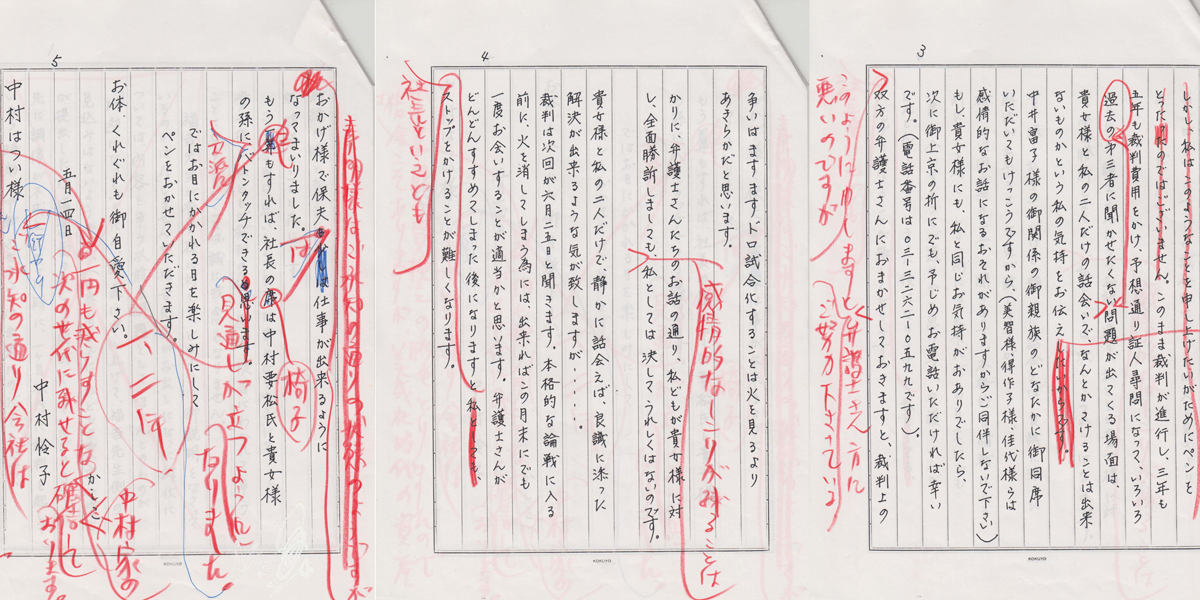 3
しかし、私はこのようなことを申し上げたいがためにペンを
とったのではございません。このまま裁判が進行し、三年も
五年も裁判費用とかけ、予想通り証人尋問になって、いろいろ
過去の第三者に聞かせたくない問題が出てくる場面は
貴女様と私の二人だけの話会いで、なんとかさけることは出来
ないものかという私の気持をお伝え
したいからです。
中井冨子様の御関係の御親族のどなたかに御同席
いただいてもけっこうですから、(美智様、得作子様、佳代様らは
感情的なお話になるおそれがありますからご同伴しないで下さい)
もし、貴女様にも、私と同じお気持がおありでしたら、
次に御上京の折にでも、予じめお電話いただければ幸い
です。(電話番号は〇三-三二六二-〇五九九です)。
双方の弁護士さんにおまかせしておきますと、裁判上の
このように申しますと弁護士さん方に
悪いのですが
ご努力下さっている
4
争いはますますドロ試合化することは火を見るより
あきらかだと思います。
かりに、弁護士さんたちのお話の通り、私どもが貴女様に対
し、全面勝訴しましても、私としては決してうれしくはないのです。
感情的なしこりが残ることは
貴女様と私の二人だけで静かに話会えば、良識に添った
解決が出来るような気が致しますが・・・・・
裁判は次回が六月二五日と聞きます。本格的な論戦に入る
前に、火を消してしまう為には、出来ればこの月末にでも
一度お会いすることが適当かと思います。弁護士さんが
どんどんすすめてしまった後になりますと、私としても、
ストップをかけることが難しくなります。
社長ということも
5
おかげ様で保夫も
仕事が出来るように
なってまいりました。
もう
もすれば、社長の席は中村要松氏と貴女様
の孫にバトンタッチできる
思います。
椅子
見通しが立つように
なりました。
ではお目にかかれる日を楽しみにして
ペンをおかせていただきます。
お体、くれぐれも御自愛下さい。
かしこ
五月一四日
中村怜子
中村はつい様
一円も減らすことなく
次の世代に
中村家の
おります。
ご承知の通り会社は
KOKUYO
KOKUYO
KOKUYO